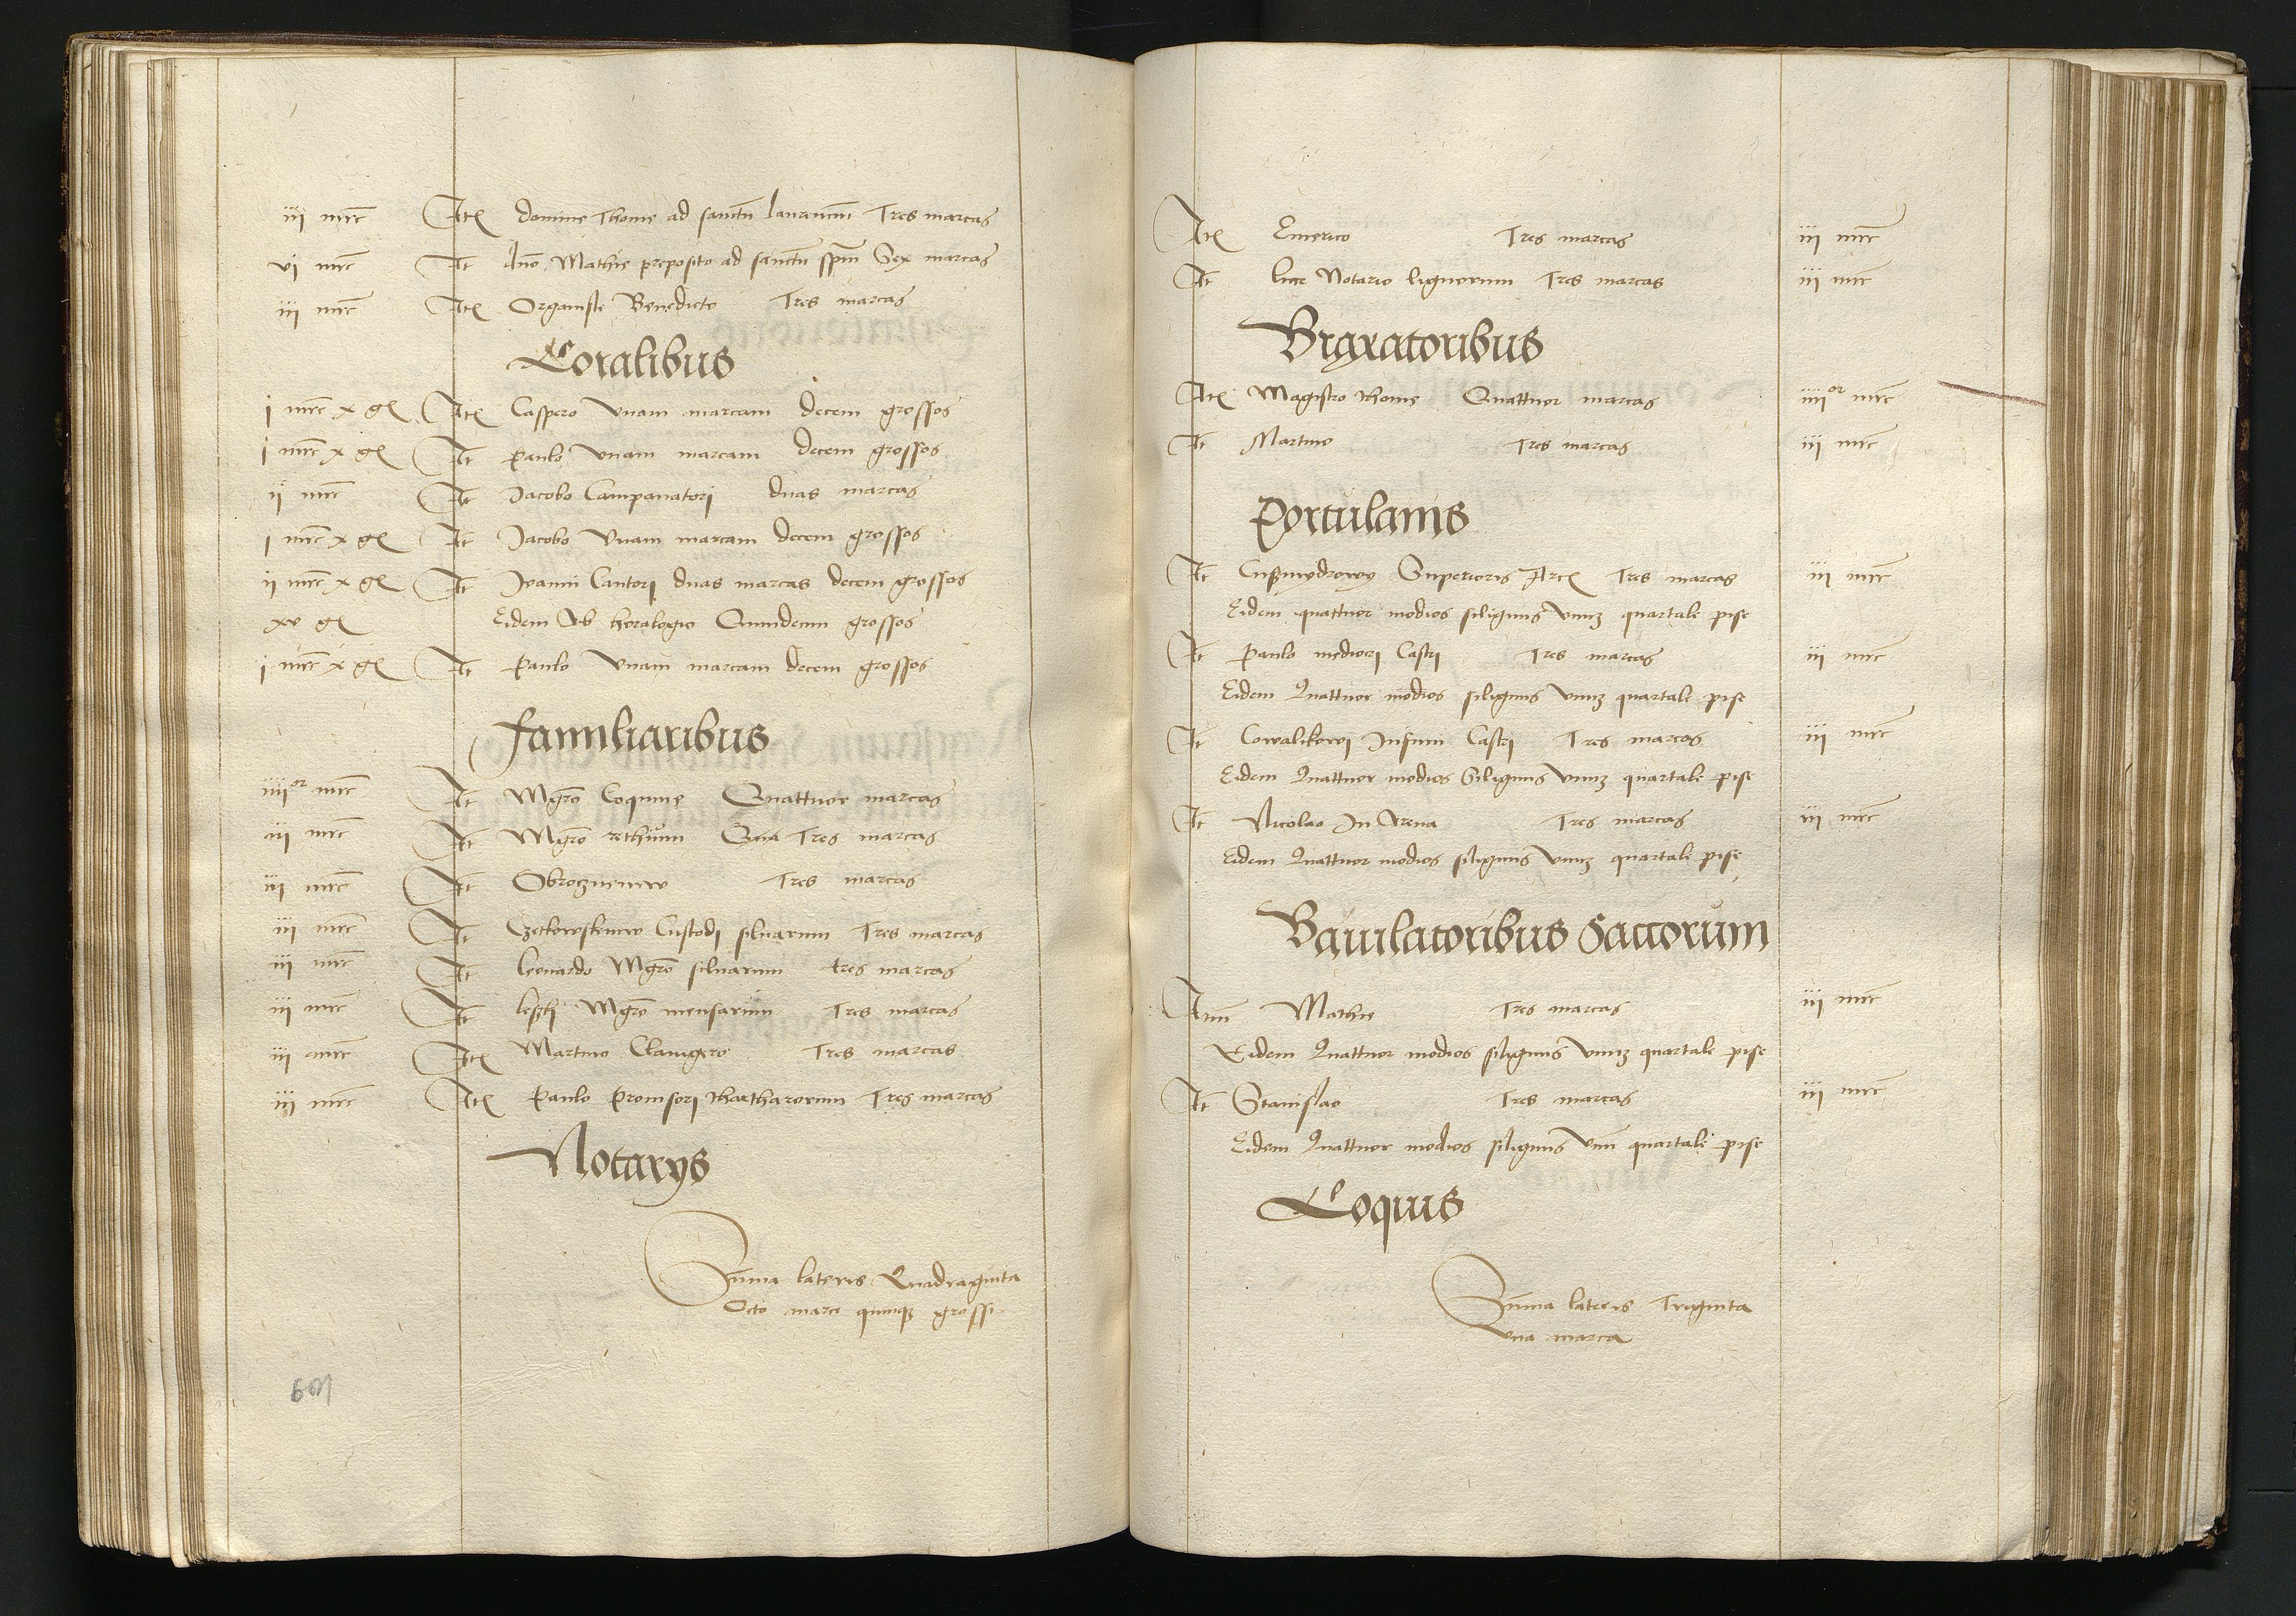 iii mrc Ite domine Thome ad sanctu laurencium Tres marcas
vi mrc It dno Mathie preposito ad sanctu spm Sex marcas
iii mrc Ite Organiste Benedicto Tres marcas
Coralibus
i mrc x gr Ite Caspero Vnam marcam decem grossos
i mrc x gr It Paulo Vnam marcam decem grossos
ii mrc It Jacobo Campanatori duas marcas
i mrc x gr It Jacobo Vnam marcam decem grossos
ii mrc x gr It Joanni Cantori duas marcas decem grossos
xv gr Eidem Ab horalogio Quindecim grossos
i mrc x gr It Paulo Vnam marcam decem grossos
Familiaribus
iiii or mrc It Mgro Coquine Quattuor marcas
iii mrc It Mgro rethium Tres marcas
iii mrc It Obrocznemv Tres marcas
iii mrc It Czetkowskemv Custodi siluarum Tres marcas
iii mrc It leonardo Mgro siluarum tres marcas
iii mrc It Mgro mensarum Tres marcas
iii mrc Ite Martino Clauigero Tres marcas
iii mrc Ite Paulo Prouisori thartharorum Tres marcas
Notarys
Suma lateris Quadraginta
Octo marce quinque grossi
609
Ite Emerico Tres marcas iii mrc
It luce Notario lignorum Tres marcas iii mrc
Braxatoribus
Ite Magistro thome Quattuor marcas iiii or mrc
It Martino Tres marcas iii mrc
Portulanis
It Superioris Arc Tres marcas iii mrc
Eidem quattuor modios siliginis vnu quartale pise
It Paulo mediori Castri Tres marcas iii mrc
Eidem Quattuor modios siliginis vnu quartale pise
It Cowalikowi Infimi Castri Tres marcas iii mrc
Eidem Quattuor modios Siliginis vnu quartale pise
It Nicolao In Arena Tres marcas iii mrc
Eidem Quattuor modios siliginis vnu quartale pise
Bauilatoribus Saccorum
Item Mathie Tres marcas iii mrc
Eidem Quattuor modios siliginis vnu quartale pise
It Stanislao Tres marcas iii mrc
Eidem Quattuor modios siliginis vnu quartale pise
Coquis
Suma lateris Triginta
vna marca